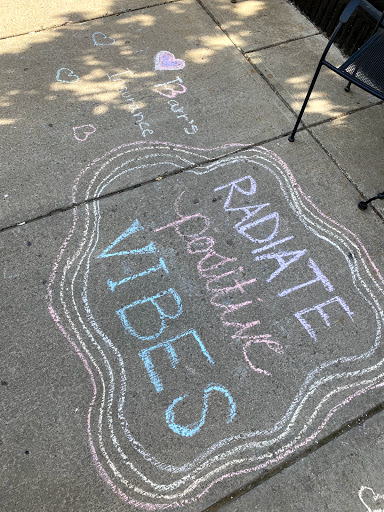 Barr's
RADIATE
positive
VIBES